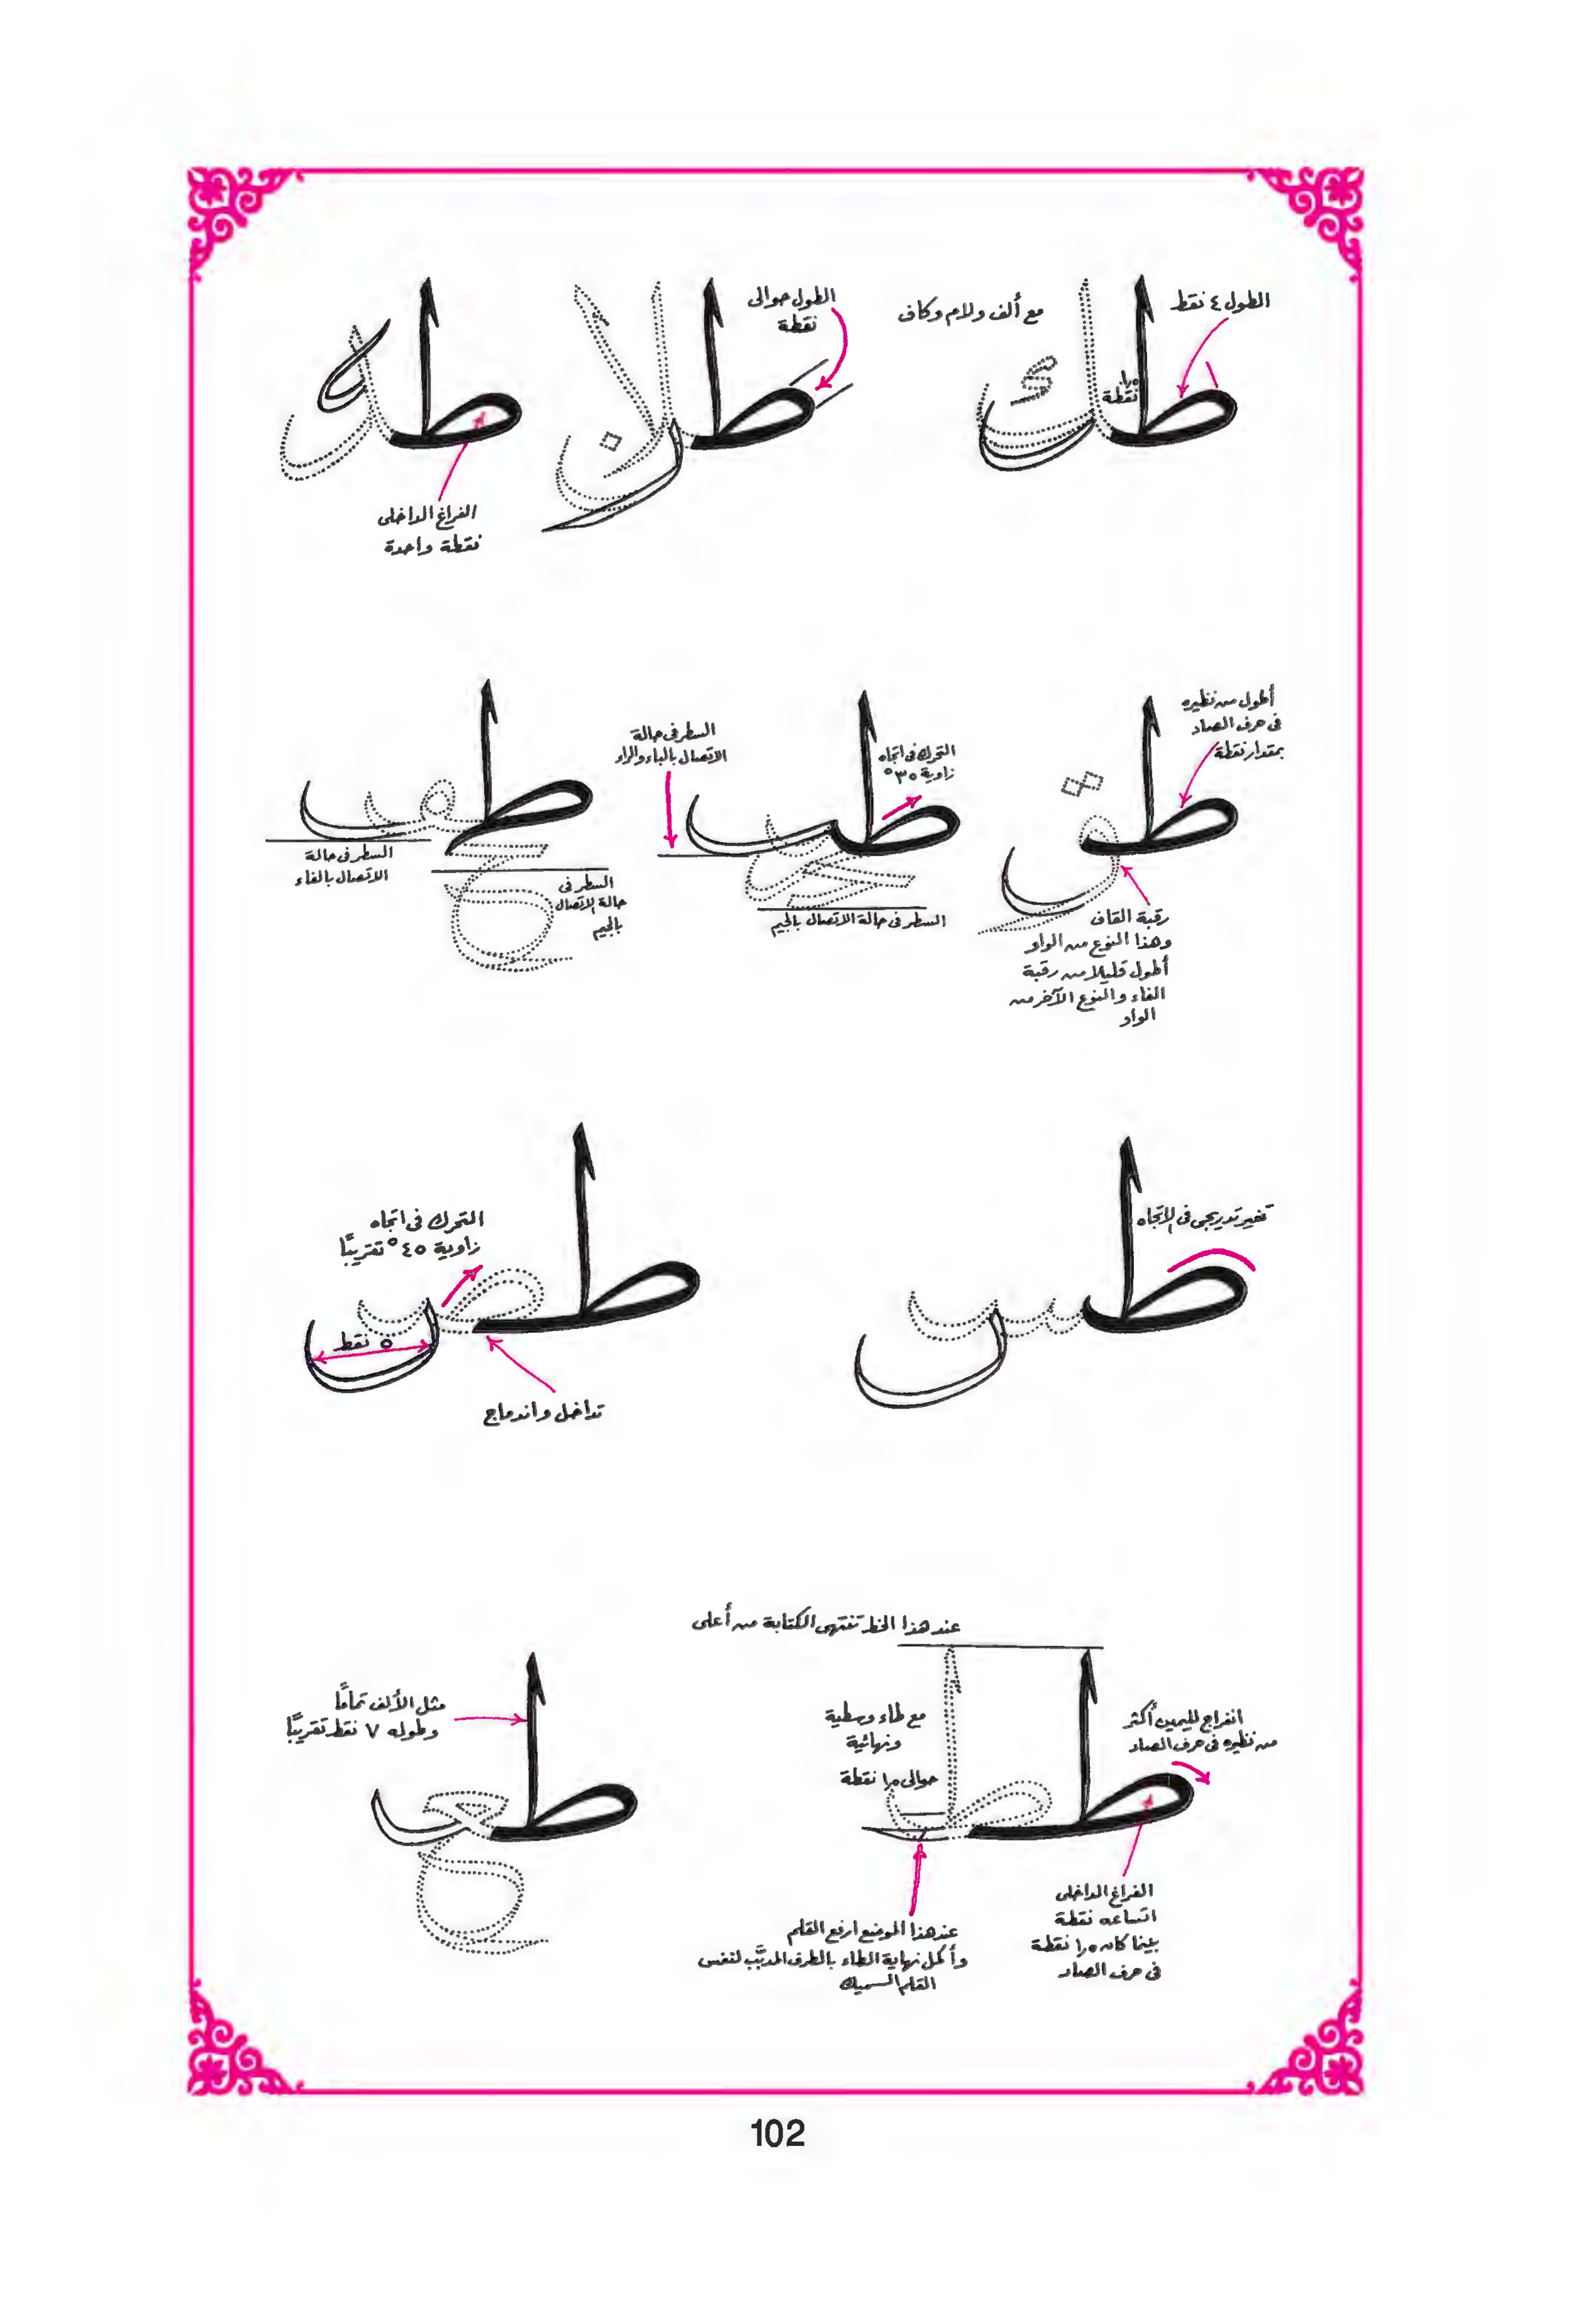 الطول ٤ نقط
مع ألف ولام وكاف
١٫٥
نقطة
الطول حوالى
نقطة
الفراغ الداخلى
نقطة واحدة
أطول من نظيره
فى حرف الصاد
بمقدار نقطة
رقبة القاف
وهذا النوع من الواو
أطول قليلا من رقبة
الفاء والنوع الآخر من
الواو
التحرك فى اتجاه
زاوية ٣٥°
السطر فى حالة
الاتصال بالباء والراء
السطر فى حالة الاتصال بالجيم
السطر فى حالة
الاتصال بالفاء
السطر فى
حالة الاتصال
بالجيم
تغير تدريجى فى الاتجاه
التحرك فى اتجاه
زاوية ٤٥° تقريبًا
٥ نقط
تداخل واندماج
عند هذا الخط تنتهى الكتابة من أعلى
انفراج لليمين أكثر
من نظيره فى حرف الصاد
مع طاء وسطية
ونهائية
حوالى ١٫٥ نقطة
الفراغ الداخلى
اتساعه نقطة
بينما كان ١٫٥ نقطة
فى حرف الصاد
عند هذا الموضع ارفع القلم
وأكمل نهاية الطاء بالطرف المدبَّب لنفس
القلم السميك
مثل الألف تمامًا
وطوله ٧ نقط تقريبًا
102